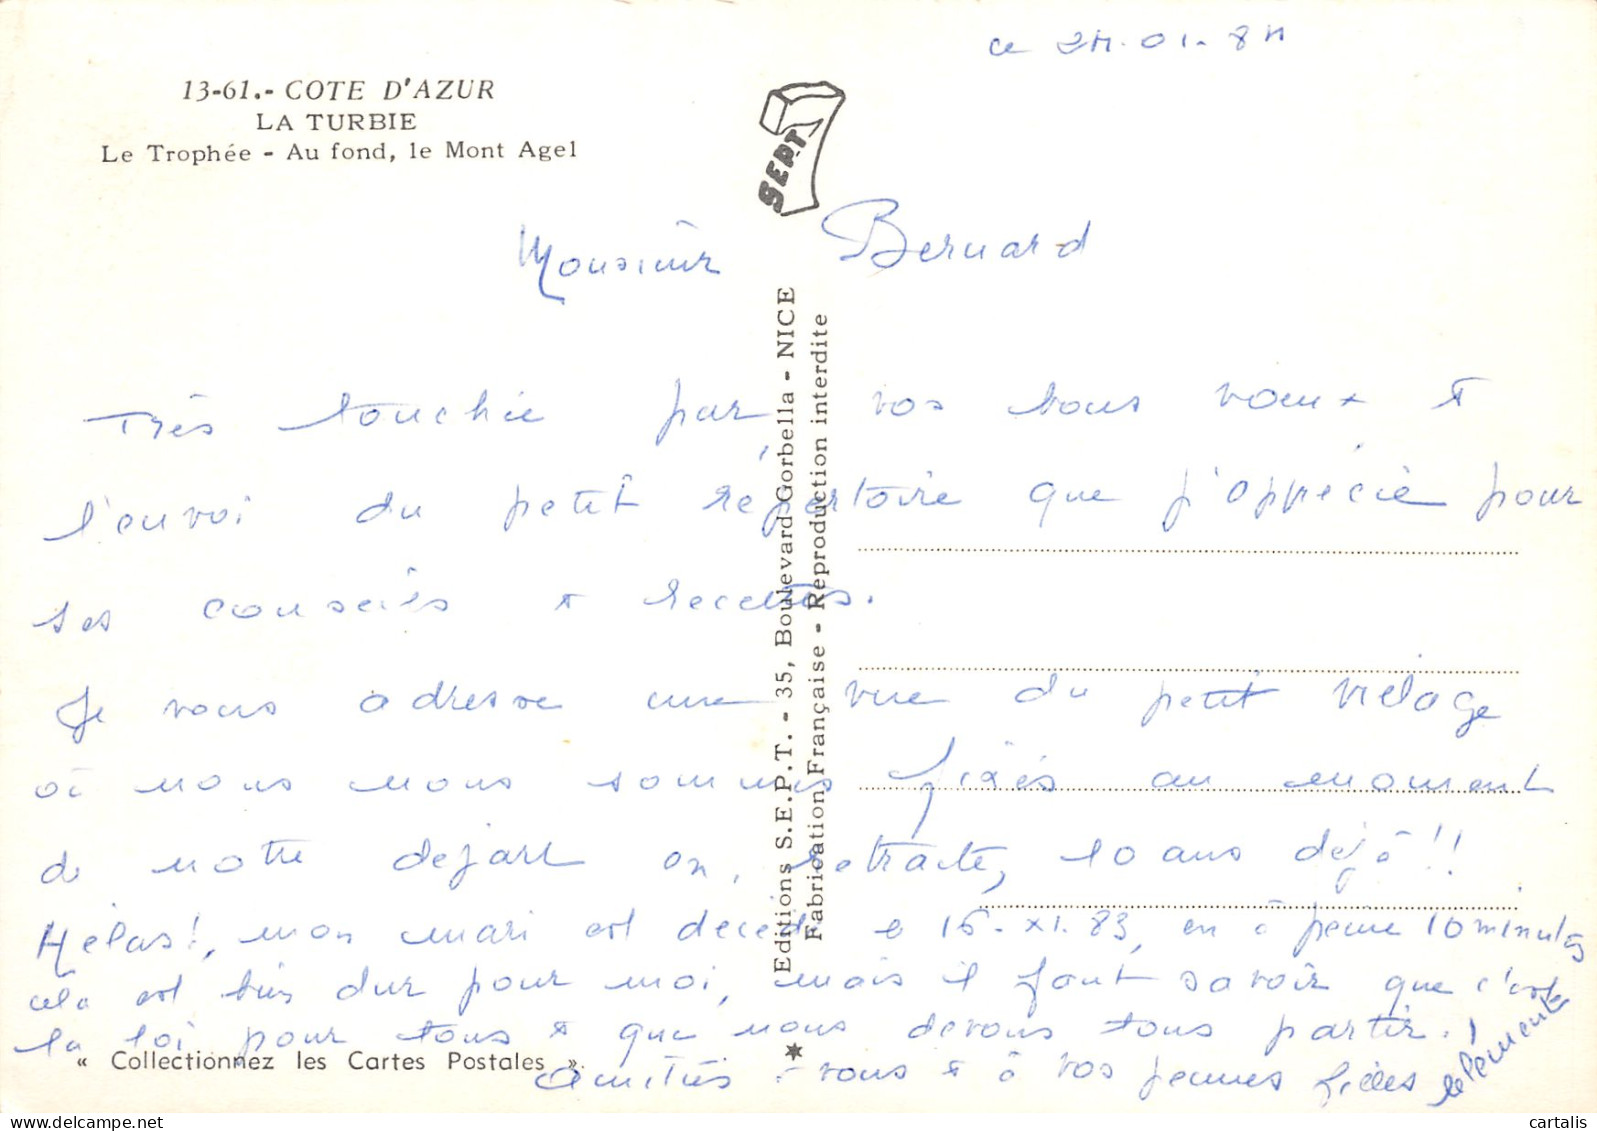 ce 24.01.84
13-61.- COTE D'AZUR
LA TURBIE
Le Trophée - Au fond, le Mont Agel
SEPT 7
Monsieur Bernard
Editions S.E.P.T. - 35, Boulevard Gorbella - NICE
Fabrication Française - Reproduction interdite
Très touchée par vos bons voeux et
l'envoi du petit répertoire que j'apprécie pour
ses conseils et recettes.
Je vous adresse une vue du petit village
où nous nous sommes fixés au moment
de notre départ en retraite, 10 ans déjà !!
Hélas !, mon mari est décédé le 15-XI.83, en à peine 10 minutes
cela est bien dur pour moi, mais il faut savoir que c'est
la loi pour tous et que nous devons tous partir !
« Collectionnez les Cartes Postales »
amitiés à vous et à vos jeunes filles
cartalis